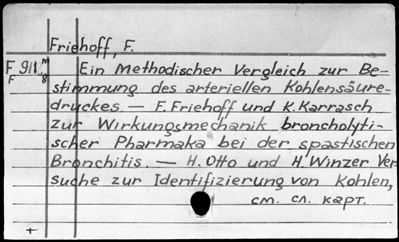 Friehoff, F.
F 911 M/8 Ein Methodischer Vergleich zur Be-
F stimmung des arteriellen Kohlensäure-
druckes. — F. Friehoff und K. Karrasch
zur Wirkungsmechanik broncholyti-
scher Pharmaka bei der spastischen
Bronchitis. — H. Otto und H. Winzer Ver-
suche zur Identifizierung von Kohlen,
см. сл. карт.
+